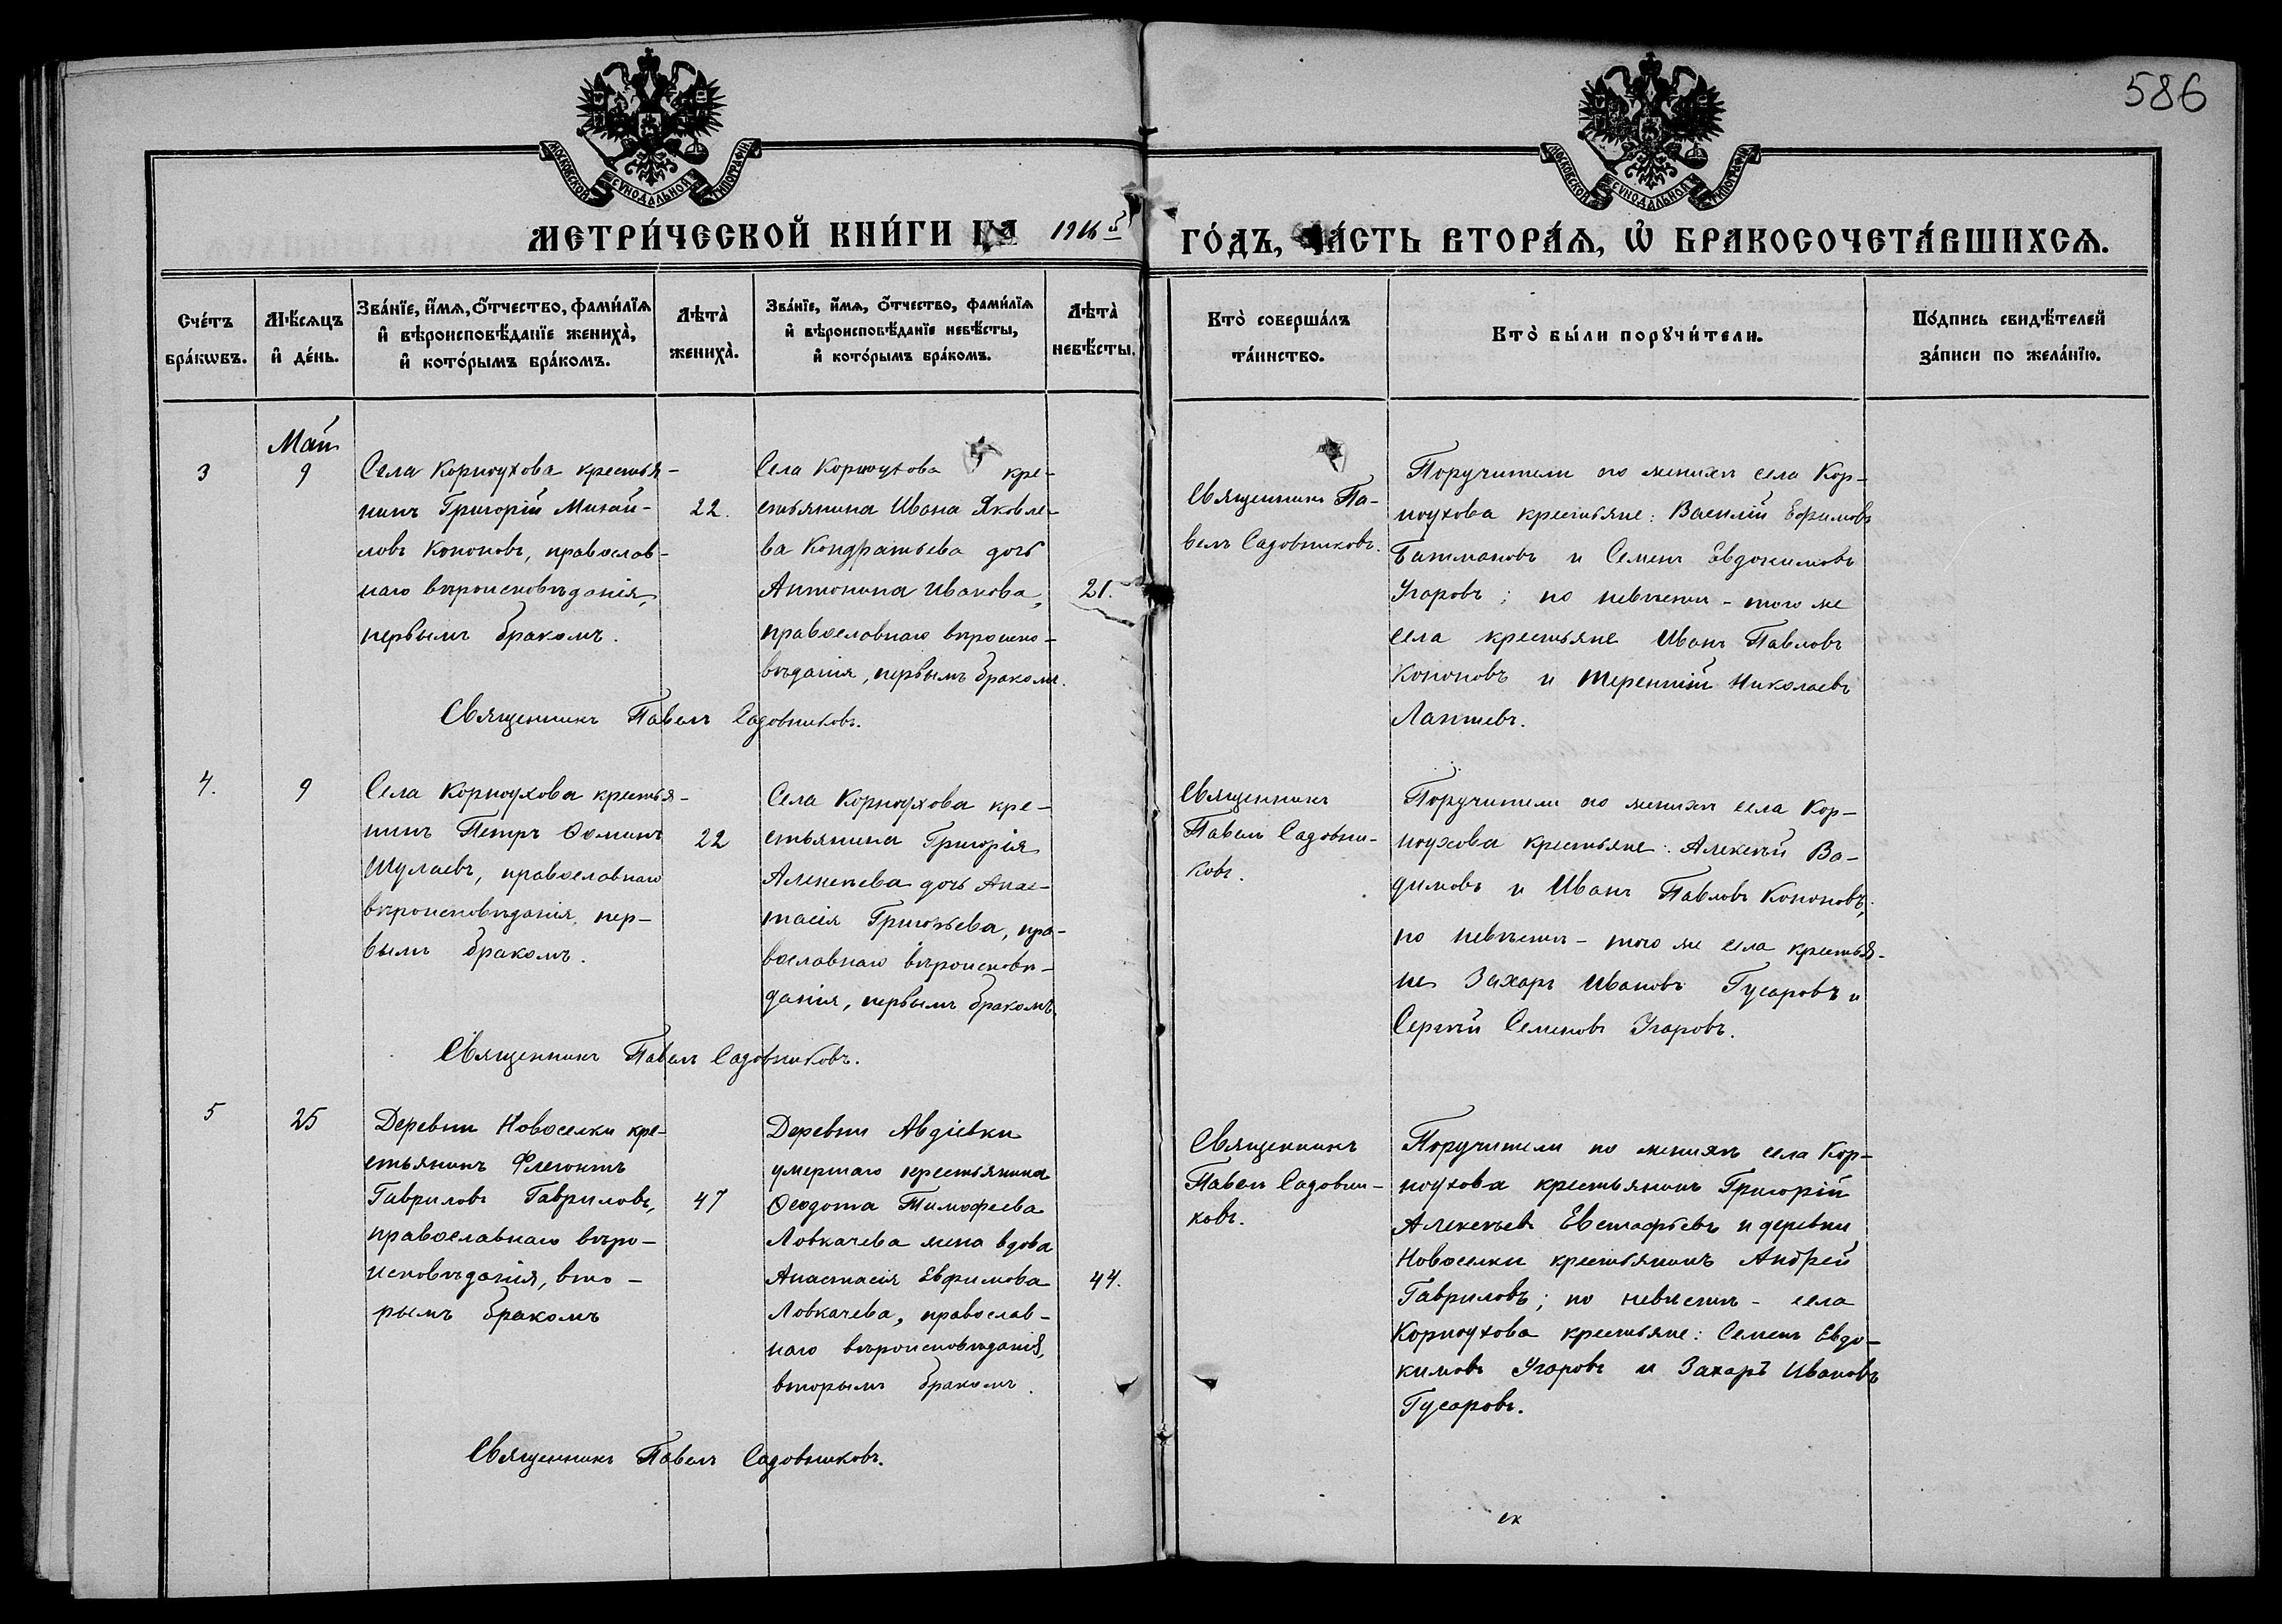 586
МОСКОВСКОЙ СѴНОДАЛЬНОЙ ТИПОГРАФІИ
МОСКОВСКОЙ СѴНОДАЛЬНОЙ ТИПОГРАФІИ
МЕТРИ́ЧЕСКОЙ КНИ́ГИ НА 1916й ГО́ДЪ, ЧА́СТЬ ВТОРА́Ѧ, Ѽ БРАКОСОЧЕТА́ВШИХСѦ.
Сче́тъ
бра́кѡвъ.
Мѣ́сѧцъ
и҆ де́нь.
Зва́нїе, и҆́мѧ, ѻ҆́тчество, фами́лїѧ
и҆ вѣроисповѣ́данїе жениха̀,
и҆ кото́рымъ бра́комъ.
Лѣта̀
жениха̀.
Зва́нїе, и҆́мѧ, ѻ҆́тчество, фами́лїѧ
и҆ вѣроисповѣ́данїе невѣ́сты,
и҆ кото́рымъ бра́комъ.
Лѣта̀
невѣ́сты.
Кто̀ соверша́лъ
та́инство.
Кто̀ бы́ли порꙋчи́тели.
По́дпись свидѣ́телей
за́писи по жела́нїю.
Май
3
9
Села Корноухова крестья-
нинъ Григорій Михай-
ловъ Кононовъ, православ-
наго вѣроисповѣданія,
первымъ бракомъ.
22.
Села Корноухова кре-
стьянина Ивана Яковле-
ва Кондратьева дочь
Антонина Иванова,
православнаго вѣроиспо-
вѣданія, первымъ бракомъ.
21.
Священникъ Па-
велъ Садовниковъ.
Поручители по женихѣ села Кор-
ноухова крестьяне: Василій Ефимовъ
Батмановъ и Семенъ Евдокимовъ
Угаровъ; по невѣстѣ - того же
села крестьяне Иванъ Павловъ
Кононовъ и Терентій Николаевъ
Лаптевъ.
Священникъ Павелъ Садовниковъ.
4.
9
Села Корноухова крестья-
нинъ Петръ Ѳоминъ
Шулаевъ, православнаго
вѣроисповѣданія, пер-
вымъ бракомъ.
22
Села Корноухова кре-
стьянина Григорія
Алексѣева дочь Анас-
тасія Григорьева, пра-
вославнаго вѣроисповѣ-
данія, первымъ бракомъ.
Священникъ
Павелъ Садовни-
ковъ.
Поручители по женихѣ села Кор-
ноухова крестьяне: Алексѣй Ва-
димовъ и Иванъ Павловъ Кононовъ;
по невѣстѣ - того же села крестья-
не Захаръ Ивановъ Гусаровъ и
Сергѣй Семеновъ Угаровъ.
Священникъ Павелъ Садовниковъ.
5
25
Деревни Новоселки кре-
стьянинъ Флегонтъ
Гавриловъ Гавриловъ,
православнаго вѣро-
исповѣданія, вто-
рымъ бракомъ
47
Деревни Авдіевки
умершаго крестьянина
Ѳеодота Тимофеева
Ловкачева жена вдова
Анастасія Евфимова
Ловкачева, православ-
наго вѣроисповѣданія,
вторымъ бракомъ.
44.
Священникъ
Павелъ Садовни-
ковъ.
Поручители по женихѣ села Кор-
ноухова крестьянинъ Григорій
Алексѣевъ Евстафьевъ и деревни
Новоселки крестьянинъ Андрей
Гавриловъ; по невѣстѣ - села
Корноухова крестьяне: Семенъ Евдо-
кимовъ Угаровъ и Захаръ Ивановъ
Гусаровъ.
Священникъ Павелъ Садовниковъ.